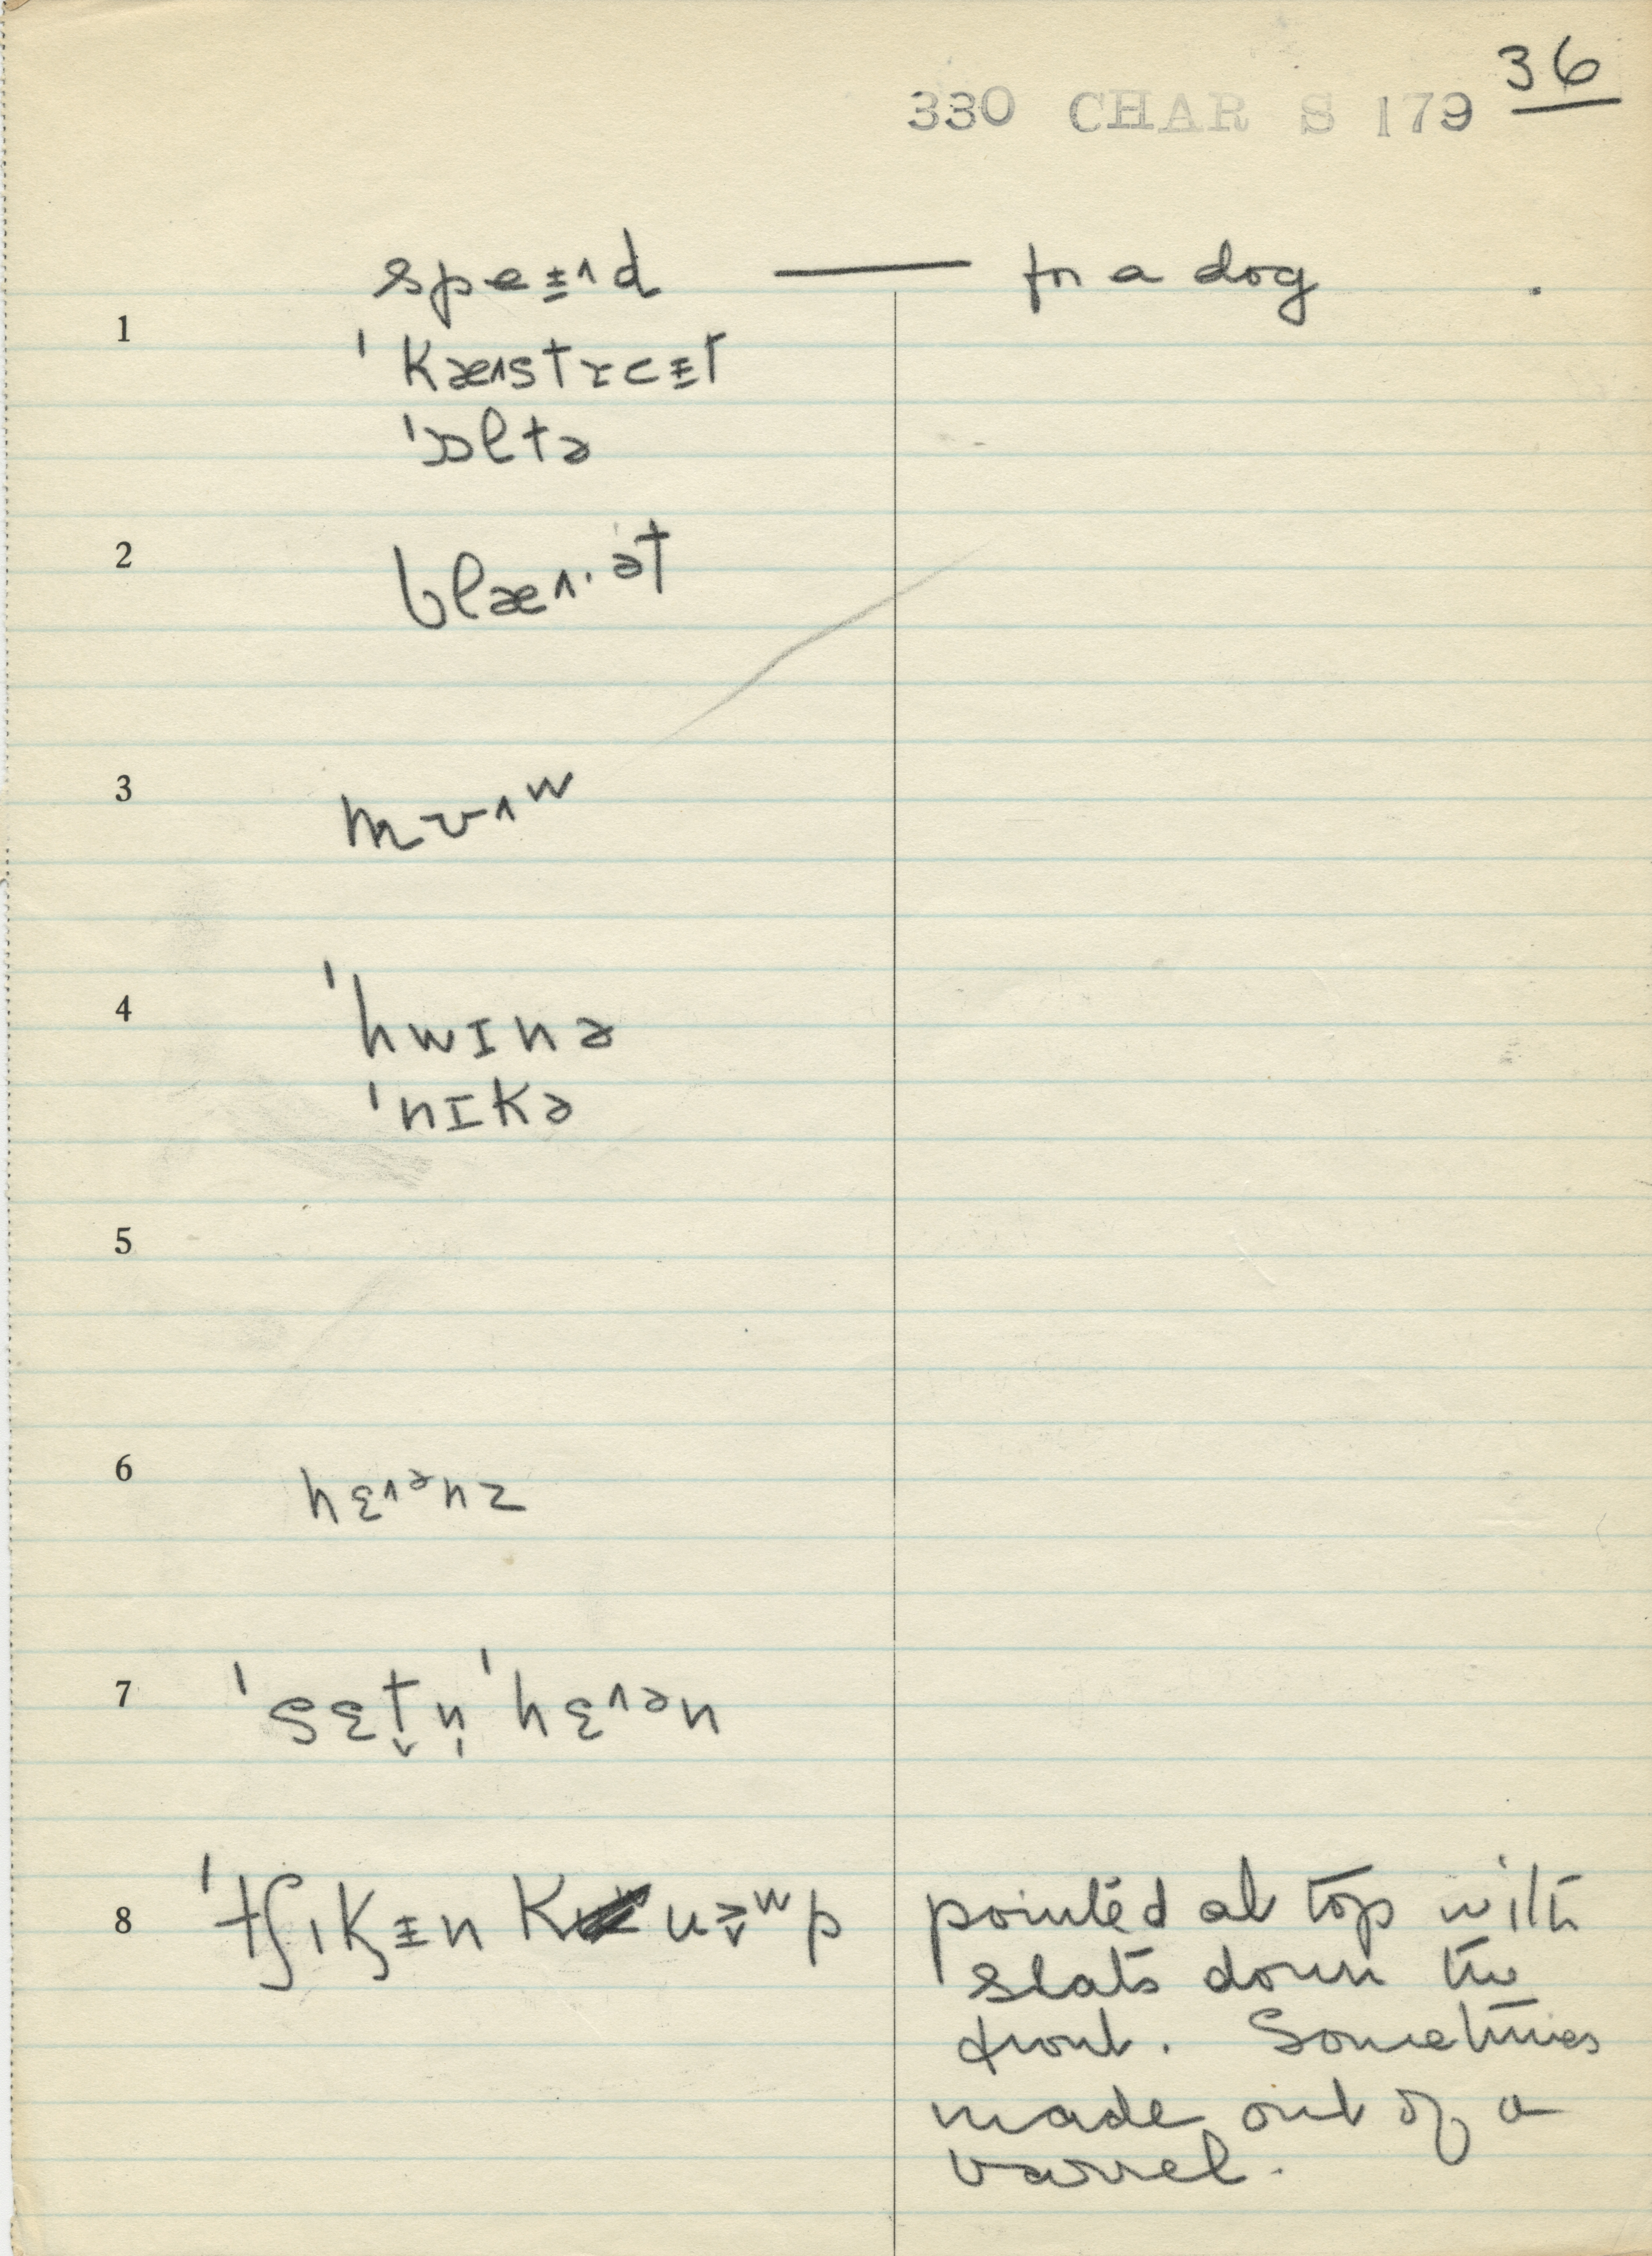 36
330 CHAR S 179
speɨ˄d — for a dog
1
ˈkæ˄strɛɨt
ˈɒltə
2
blæ˄·ət
3
mʊ˄ʷ
4
ˈhwɪnə
ˈnɪkə
5
6
hɛ˄ᵊnz
7
ˈsɛt̬n̩ ˈhɛ˄ᵊn
8
ˈtʃɪkɨn
pointed at top with
slats down the
front. Sometimes
made out of a
barrel.